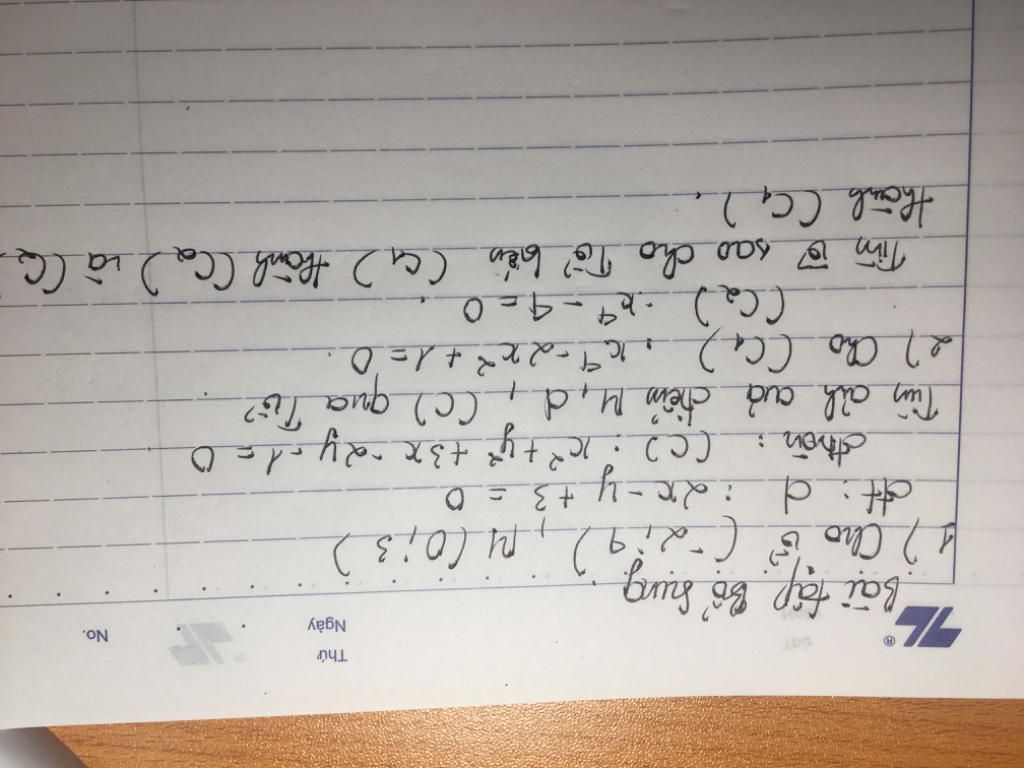 Thứ
Ngày
No.
Bài tập Bổ sung
1) Cho v⃗ (-2; 4), M(0; 3)
đt: d : 2x - y + 3 = 0
đtròn : (C) : x² + y² + 3x - 2y - 1 = 0
Tìm ảnh của điểm M, d, (C) qua Tv⃗
2) Cho (C₁) : x⁴ - 2x² + 1 = 0.
(C₂) : x⁴ - 4 = 0.
Tìm v⃗ sao cho Tv⃗ biến (C₁) thành (C₂) và (C₂
thành (C₁).